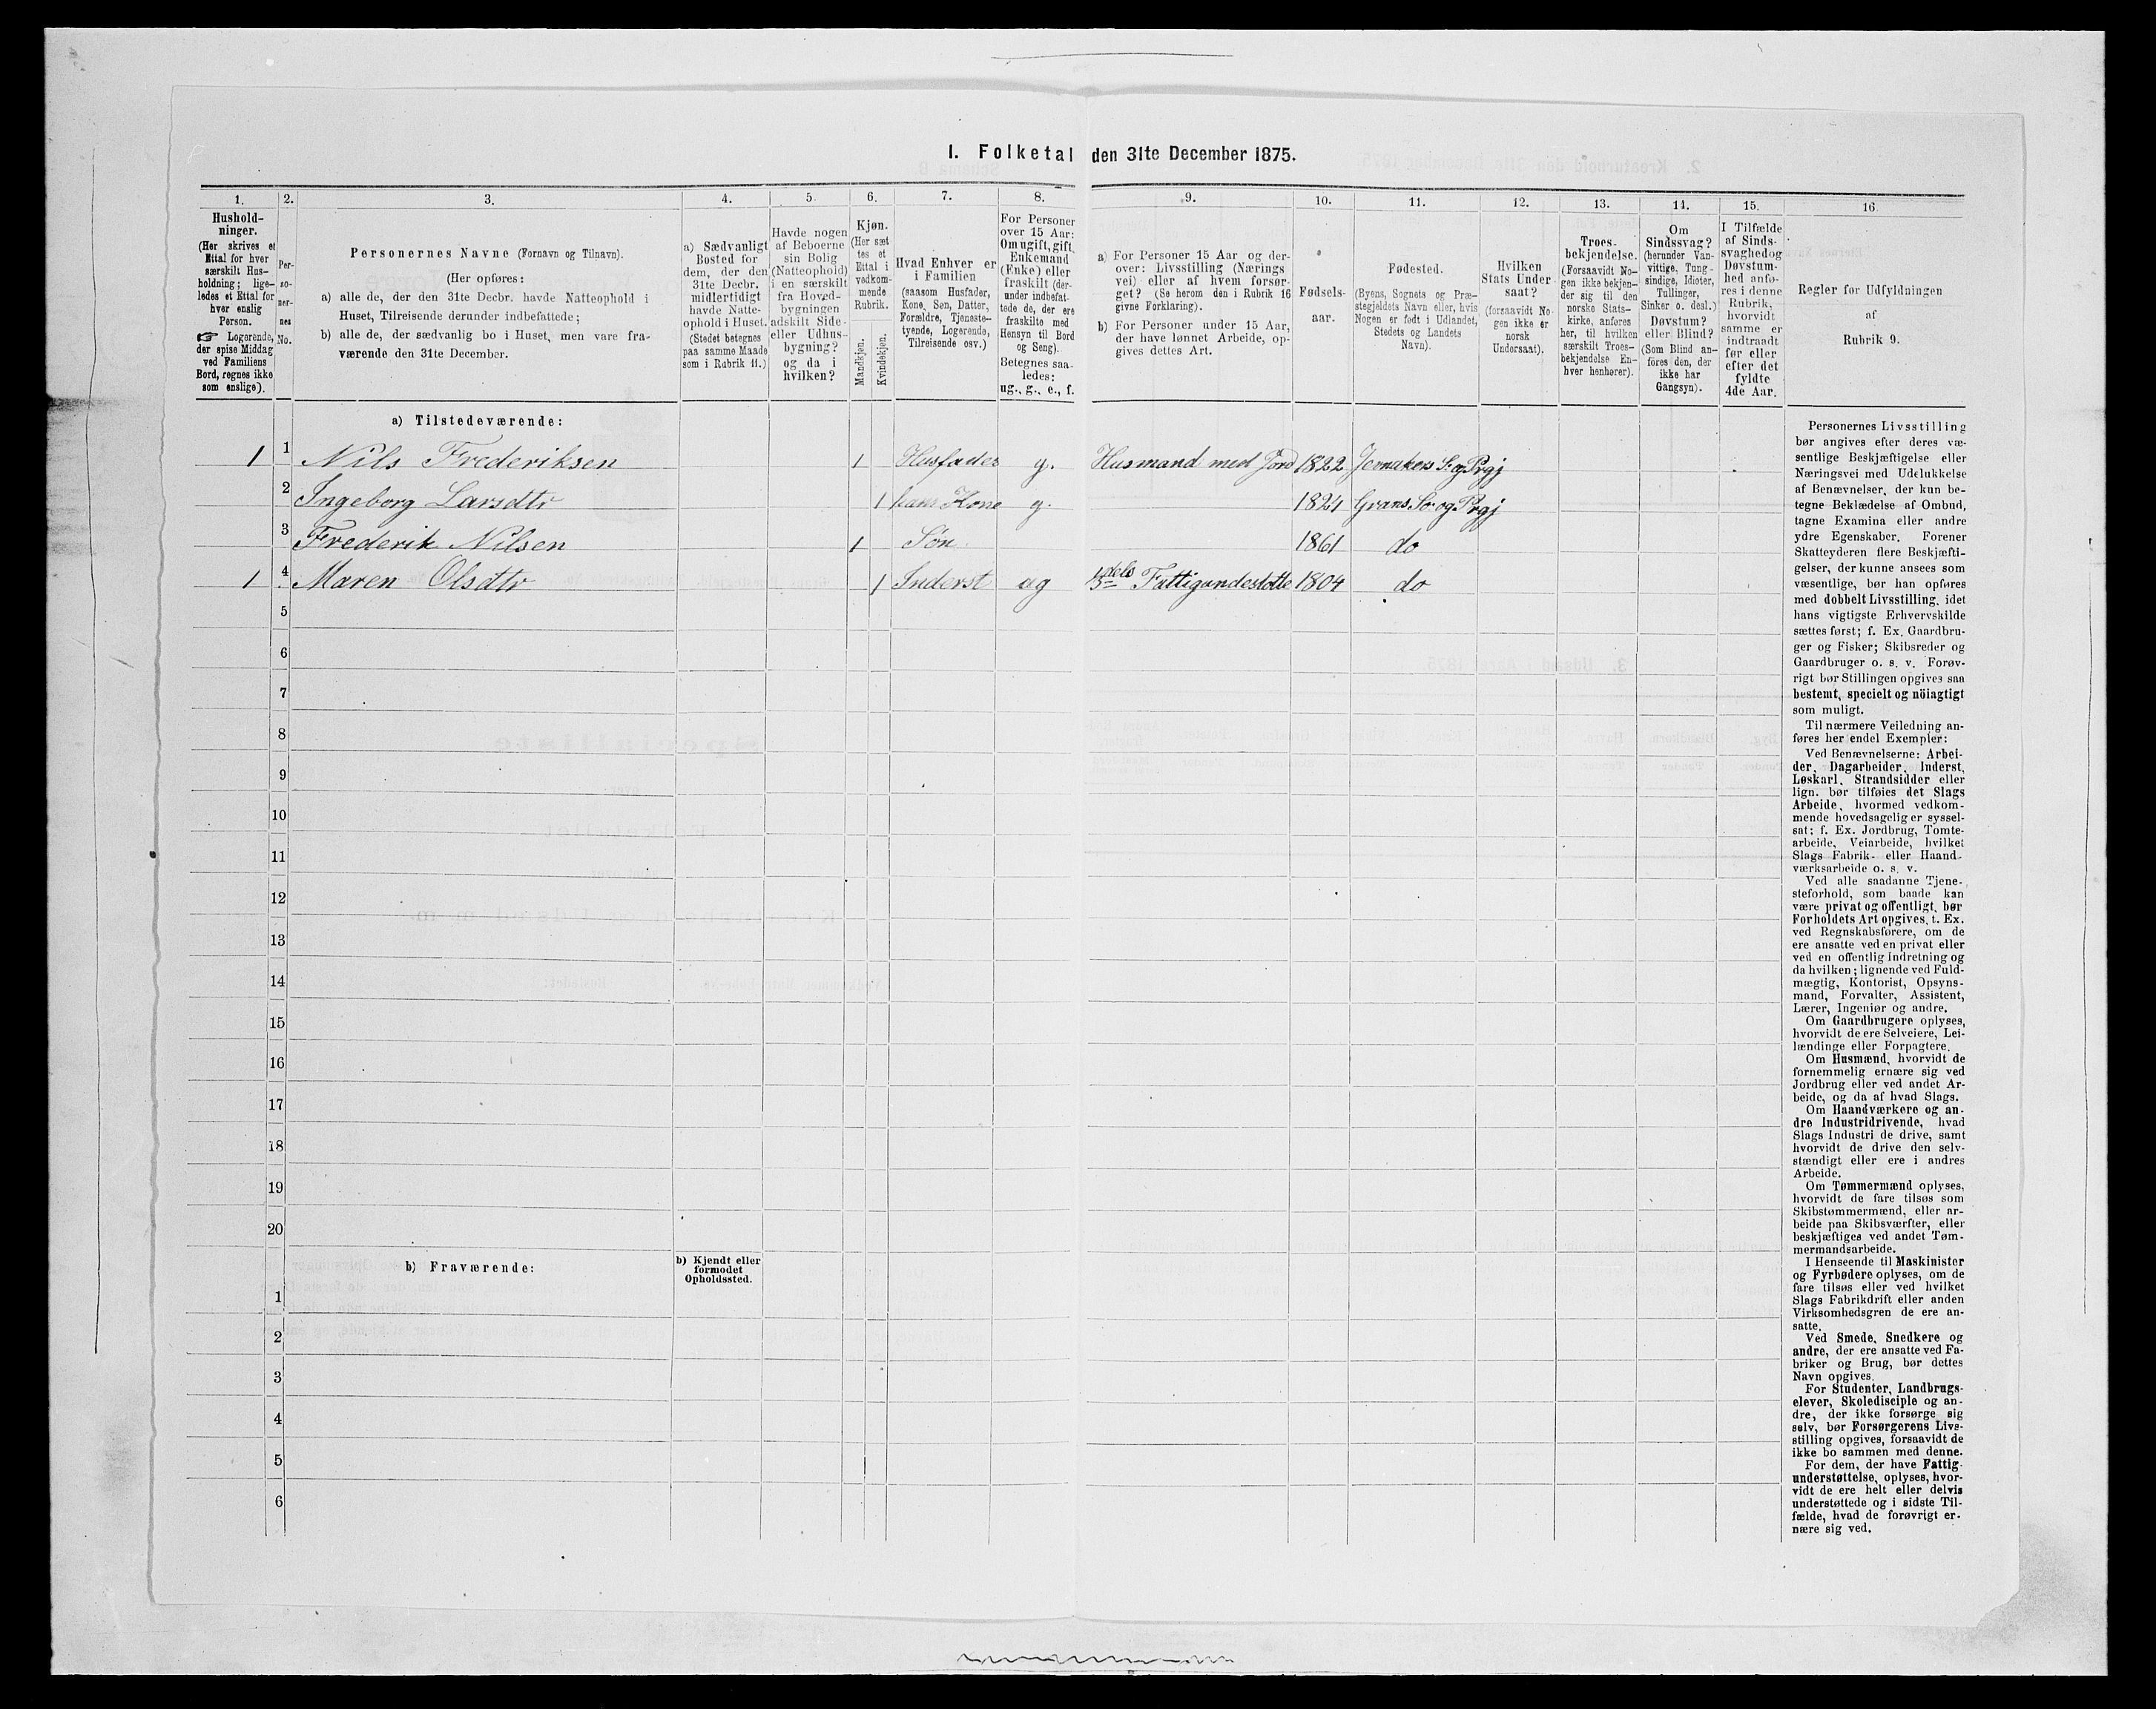 1. Folketal den 31te December 1875.
1.
Hushold-
ninger.
(Her skrives et
Ettal for hver
særskilt Hus-
holdning; lige-
ledes et Ettal for
hver enslig
Person.
☞ Logerende,
der spise Middag
ved Familiens
Bord, regnes ikke
som enslige).
2.
Per-
so-
ner-
nes
No.
3.
Personernes Navne (Fornavn og Tilnavn).
(Her opføres:
a) alle de, der den 31te Decbr. havde Natteophold i
Huset, Tilreisende derunder indbefattede;
b) alle de, der sædvanlig bo i Huset, men vare fra-
værende den 31te December.
4.
a) Sædvanligt
Bosted for
dem, der den
31te Decbr.
midlertidigt
havde Natte-
ophold i Huset.
(Stedet betegnes
paa samme Maade
som i Rubrik 11.)
5.
Havde nogen
af Beboerne
sin Bolig
(Natteophold)
i en særskilt
fra Hoved-
bygningen
adskilt Side-
eller Udhus-
bygning?
og da i
hvilken?
6.
Kjøn.
(Her sæt
tes et
Ettal i
vedkom-
mende
Rubrik.
Mandkjøn.
Kvindekjøn.
7.
Hvad Enhver er
i Familien
(saasom Husfader,
Kone, Søn, Datter,
Forældre, Tjeneste-
tyende, Logerende,
Tilreisende osv.)
8.
For Personer
over 15 Aar:
Om ugift, gift,
Enkemand
(Enke) eller
fraskilt (der-
under indbefat-
tede de, der ere
fraskilte med
Hensyn til Bord
og Seng).
Betegnes saa-
ledes:
ug., g., e., f.
9.
a) For Personer 15 Aar og der-
over: Livsstilling (Nærings
vei) eller af hvem forsør-
get? (Se herom den i Rubrik 16
givne Forklaring).
b) For Personer under 15 Aar,
der have lønnet Arbeide, op-
gives dettes Art.
10.
Fødsels-
aar.
11.
Fødested.
(Byens, Sognets og Præ-
stegjeldets Navn eller, hvis
Nogen er født i Udlandet,
Stedets og Landets
Navn).
12.
Hvilken
Stats Under
saat?
(forsaavidt No-
gen ikke er
norsk
Undersaat).
13.
Troes-
bekjendelse.
(Forsaavidt No-
gen ikke bekjen-
der sig til den
norske Stats-
kirke, anføres
her, til hvilken
særskilt Troes-
bekjendelse En-
hver henhører).
14.
Om
Sindssvag?
(herunder Van-
vittige, Tung-
sindige, Idioter,
Tullinger,
Sinker o. desl.)
Døvstum?
eller Blind?
(Som Blind an-
føres den, der
ikke har
Gangsyn).
15.
I Tilfælde
af Sinds-
svaghed og
Døvstum-
hed anfø-
res i denne
Rubrik,
hvorvidt
samme er
indtraadt
før eller
efter det
fyldte
4de Aar.
16.
Regler for Udfyldningen
af
Rubrik 9.
a) Tilstedeværende:
1 1 Nils Frederiksen 1 Husfader g. Husmand med Jord 1822 Jevnakers S: og Prgj
2 Ingeborg Larsdtr 1 hans Kone g. 1824 Grans So: og Prgj
3 Frederik Nilsen 1 Søn 1861 do
1 4 Maren Olsdtr 1 Inderst ug Fattigundestøtte 1804 do
5
6
7
8
9
10
11
12
13
14
15
16
17
18
19
20
b) Fraværende:
b) Kjendt eller
formodet
Opholdssted.
1
2
3
4
5
6
Personernes Livsstilling
bør angives efter deres væ-
sentlige Beskjæftigelse eller
Næringsvei med Udelukkelse
af Benævnelser, der kun be-
tegne Beklædelse af Ombud,
tagne Examina eller andre
ydre Egenskaber. Forener
Skatteyderen flere Beskjæfti-
gelser, der kunne ansees som
væsentlige, bør han opføres
med dobbelt Livsstilling, idet
hans vigtigste Erhvervskilde
sættes først; f. Ex. Gaardbru-
ger og Fisker; Skibsreder og
Gaardbruger o. s. v. Forøv-
rigt bør Stillingen opgives saa
bestemt, specielt og nöiagtigt
som muligt.
Til nærmere Veiledning an-
føres her endel Exempler:
Ved Benævnelserne: Arbei-
der, Dagarbeider, Inderst,
Løskarl, Strandsidder eller
lign. bør tilføies det Slags
Arbeide, hvormed vedkom-
mende hovedsagelig er syssel-
sat; f. Ex. Jordbrug, Tomte-
arbeide, Veiarbeide, hvilket
Slags Fabrik- eller Haand-
værksarbeide o. s. v.
Ved alle saadanne Tjene-
steforhold, som baade kan
være privat og offentligt, bør
Forholdets Art opgives, t. Ex.
ved Regnskabsførere, om de
ere ansatte ved en privat eller
ved en offentlig Indretning og
da hvilken; lignende ved Fuld-
mægtig, Kontorist, Opsyns-
mand, Forvalter, Assistent,
Lærer, Ingeniør og andre.
Om Gaardbrugere oplyses,
hvorvidt de ere Selveiere, Lei-
lændinge eller Forpagtere.
Om Husmænd, hvorvidt de
fornemmelig ernære sig ved
Jordbrug eller ved andet Ar-
beide, og da af hvad Slags.
Om Haandværkere og an-
dre Industridrivende, hvad
Slags Industri de drive, samt
hvorvidt de drive den selv-
stændigt eller ere i andres
Arbeide.
Om Tømmermænd oplyses,
hvorvidt de fare tilsøs som
Skibstømmermænd, eller ar-
beide paa Skibsværfter, eller
beskjæftiges ved andet Tøm-
mermandsarbeide.
I Henseende til Maskinister
og Fyrbødere oplyses, om de
fare tilsøs eller ved hvilket
Slags Fabrikdrift eller anden
Virksomhedsgren de ere an-
satte.
Ved Smede, Snedkere og
andre, der ere ansatte ved Fa-
briker og Brug, bør dettes
Navn opgives.
For Studenter, Landbrugs-
elever, Skoledisciple og an-
dre, der ikke forsørge sig
selv, bør Forsørgerens Livs-
stilling opgives, forsaavidt de
ikke bo sammen med denne.
For dem, der have Fattig-
understøttelse, oplyses, hvor-
vidt de ere helt eller delvis
understøttede og i sidste Til-
fælde, hvad de forøvrigt er-
nære sig ved.